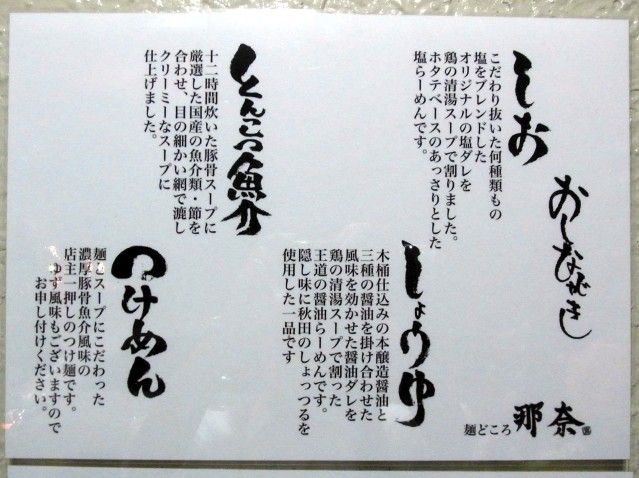 おしながき
しお
こだわり抜いた何種類もの
塩をブレンドした
オリジナルの塩ダレを
鶏の清湯スープで割りました。
ホタテベースのあっさりとした
塩らーめんです。
とんこつ魚介
十二時間炊いた豚骨スープに
厳選した国産の魚介類・節を
合わせ、目の細かい網で漉し
クリーミーなスープに
仕上げました。
しょうゆ
木桶仕込みの本醸造醤油と
三種の醤油を掛け合わせた
風味を効かせた醤油ダレを
鶏の清湯スープで割った
王道の醤油らーめんです。
隠し味に秋田のしょっつるを
使用した一品です
つけめん
麺とスープにこだわった
濃厚豚骨魚介風味の
店主一押しのつけ麺です。
ゆず風味もございますので
お申し付けください。
麺どころ 那奈